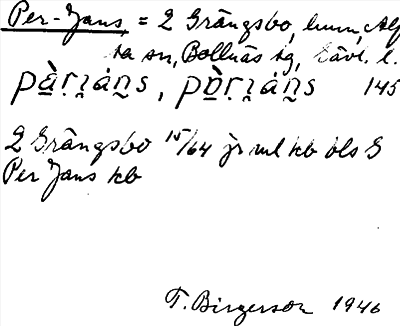 Per-Jans = 2 Grängsbo, hmn, Alf
ta sn, Bollnäs tg, Gävl. l.
pà̱ṛɿáṉs, pò̱ṛɿáṉs 145
2 Grängsbo 15/64 jr ml kb bls G
Per Jans kb
T. Birgerson 1946